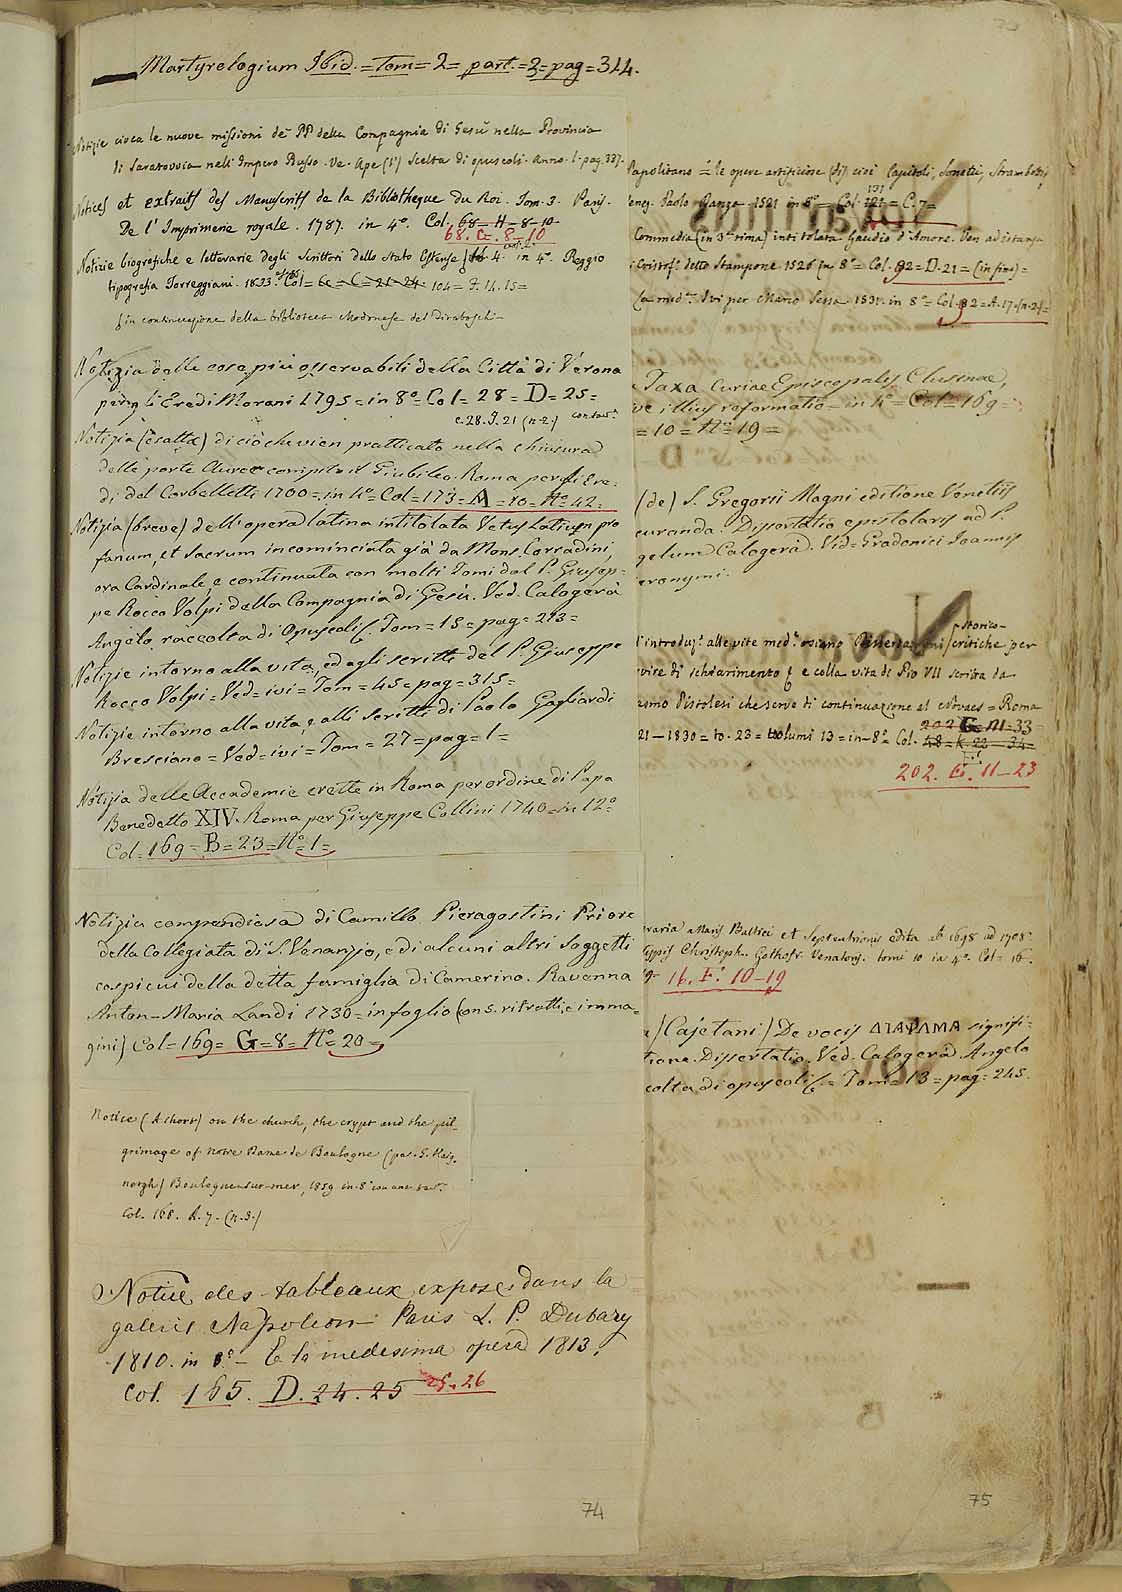 Martyrologium Ibid. = Tom = 2 = part. = 2 = pag = 314.
Notizie circa le nuove missioni de PP della Compagnia di Gesù nella Provincia
di Saratovvia nell' Impero Russo. Ve. Ape (l') Scelta di opuscoli. Anno. 1. pag. 337.
Notices et extraits des Manuscrits de la Bibliotheque du Roi. Tom. 3. Paris.
De l' Imprimerie royale. 1787. in 4º. Col. 68 - H - 8 - 10
68. C. 8. 10
Notizie biografiche e letterarie degli Scrittori dello Stato Estense 4. in 4º. Reggio
tipografia Torreggiani. 1833. Col = = C = 21 - 24. 104 = F. 14. 15 =
in continuazione della biblioteca Modenese del Tiraboschi -
Notizia delle cose più osservabili della Città di Verona
per gli Eredi Morani 1795 = in 8º = Col = 28 = D = 25 =
c. 28. I. 21 (n. 2.)
Notizia (esatta) di ciò che vien pratticato nella chiusura
delle porte Auree compito il Giubileo. Roma per gli Ere=
di del Corbelletti 1700 = in 4º = Col = 173 = M = 10 = Nº 42 =
Notizia (breve) dell' opera latina intitolata Vetus Latium pro
fanum, et sacrum incominciata già da Mons. Corradini,
ora Cardinale, e continuata con molti Tomi dal P. Giusep=
pe Rocco Volpi della Compagnia di Gesù. Ved. Calogerà
Angelo raccolta di Opuscoli &. Tom = 15 = pag = 213 =
Notizie intorno alla vita, ed agli scritti del P. Giuseppe
Rocco Volpi = Ved = ivi = Tom = 45 = pag = 315 =
Notizie intorno alla vita, e alli scritti di Paolo Gagliardi
Bresciano = Ved = ivi = Tom = 27 = pag = 1 =
Notizia delle Accademie erette in Roma per ordine di Papa
Benedetto XIV. Roma per Giuseppe Collini 1740 = in 12º =
Col = 169 = B = 23 = Nº 1 =
Notizia compendiosa di Camillo Pieragostini Priore
della Collegiata di S. Venanzio, e di alcuni altri soggetti
cospicui della detta famiglia di Camerino. Ravenna
Anton - Maria Landi 1730 = in foglio (con s. ritratti, e imma=
gini) Col = 169 = G = 8 = Nº = 20 =
Notice (A short) on the church, the crypt and the pil-
grimage of notre Dame de Boulogne (par G. Haig-
nergh) Boulogne-sur-mer, 1859 in 8º
Col. 168. A. 7. (n. 3.)
Notice des tableaux exposés dans la
galerie Napoleon Paris L. P. Dubray
1810. in 8.º - E la medesima opera 1813.
Col. 165. D. 24. 25 25. 26
74
Napolitano = le opere artificiose (di) cioè Capitoli, Sonetti, Strambotti
Venez. Paolo Danza 1521 in 8º = Col. 121 = C. 7 =
131
Commedia (in 3ª rima) intitolata Gaudio d'Amore. Ven. ad istanza
Cristofº detto Stampone 1526 in 8º = Col. 92 = D. 21 = (in fine) =
La medª. Ivi per Mario Sessa 1531. in 8º = Col. 92 = A. 17. (n. 2) =
Taxa Curiae Episcopalis Clusinae,
ive illius reformatio = in 4º = Col = 169 =
= 10 = Nº = 19 =
(de) S. Gregorii Magni editione Venetiis
curanda. Dissertatio epistolaris ad P.
gelum Calogerà. Vid = Gradenici Joannis
eronymi.
Storico-
l'introduzº. alle vite medº. ossiano Dissertazioni critiche per
vire di schiarimento & e colla vita di Pio VII scritta da
asmo Pistolesi che serve di continuazione al Novaes = Roma
21 - 1830 = to. 23 = volumi 13 = in - 8º = Col. 48 = K. 22 - 34 =
202 G = III = 33 =
202. G. 11 - 23
raria Maris Baltici et Septentrionis edita ab 1698 ad 1708.
Typis Christoph. Gothofr. Venatoris. tomi 10 in 4º. Col = 16.
16. F. 10 - 19
(Cajetani) De vocis ΔΙΑΨΑΛΜΑ signifi-
tione. Dissertatio. Ved. Calogerà Angelo
colta di opuscoli &. = Tom = 13 = pag = 245.
75